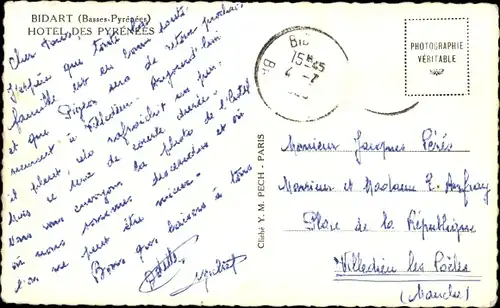 BIDART (Basses-Pyrénées)
HOTEL DES PYRÉNÉES
Cher tous,
J'espère que toute la
famille est en bonne santé
et que Pigeon sera de retour prochai-
nement à Villedieu. Aujourd'hui
il pleut, cela rafraîchit un peu
mais ce sera de courte durée.
Nous vous envoyons la photo de l'hôtel
où nous sommes descendus et où
l'on ne peut être mieux.
Bons gros baisers à tous
Cliché Y. M. PECH - PARIS
BID
15H45
4 -7
PHOTOGRAPHIE
VÉRITABLE
Monsieur Jacques Pérés
Monsieur et Madame E. Anfray
Place de la République
Villedieu les Poêles
(Manche)